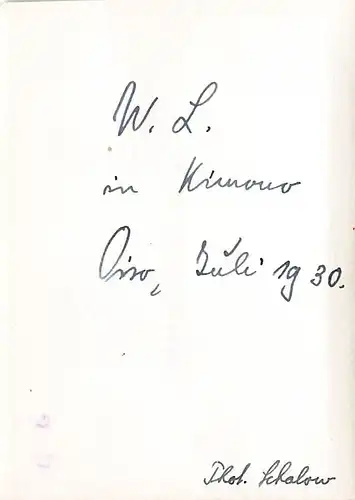 W. L.
in Kimono
Oiso, Juli 1930.
Phot. Schalow